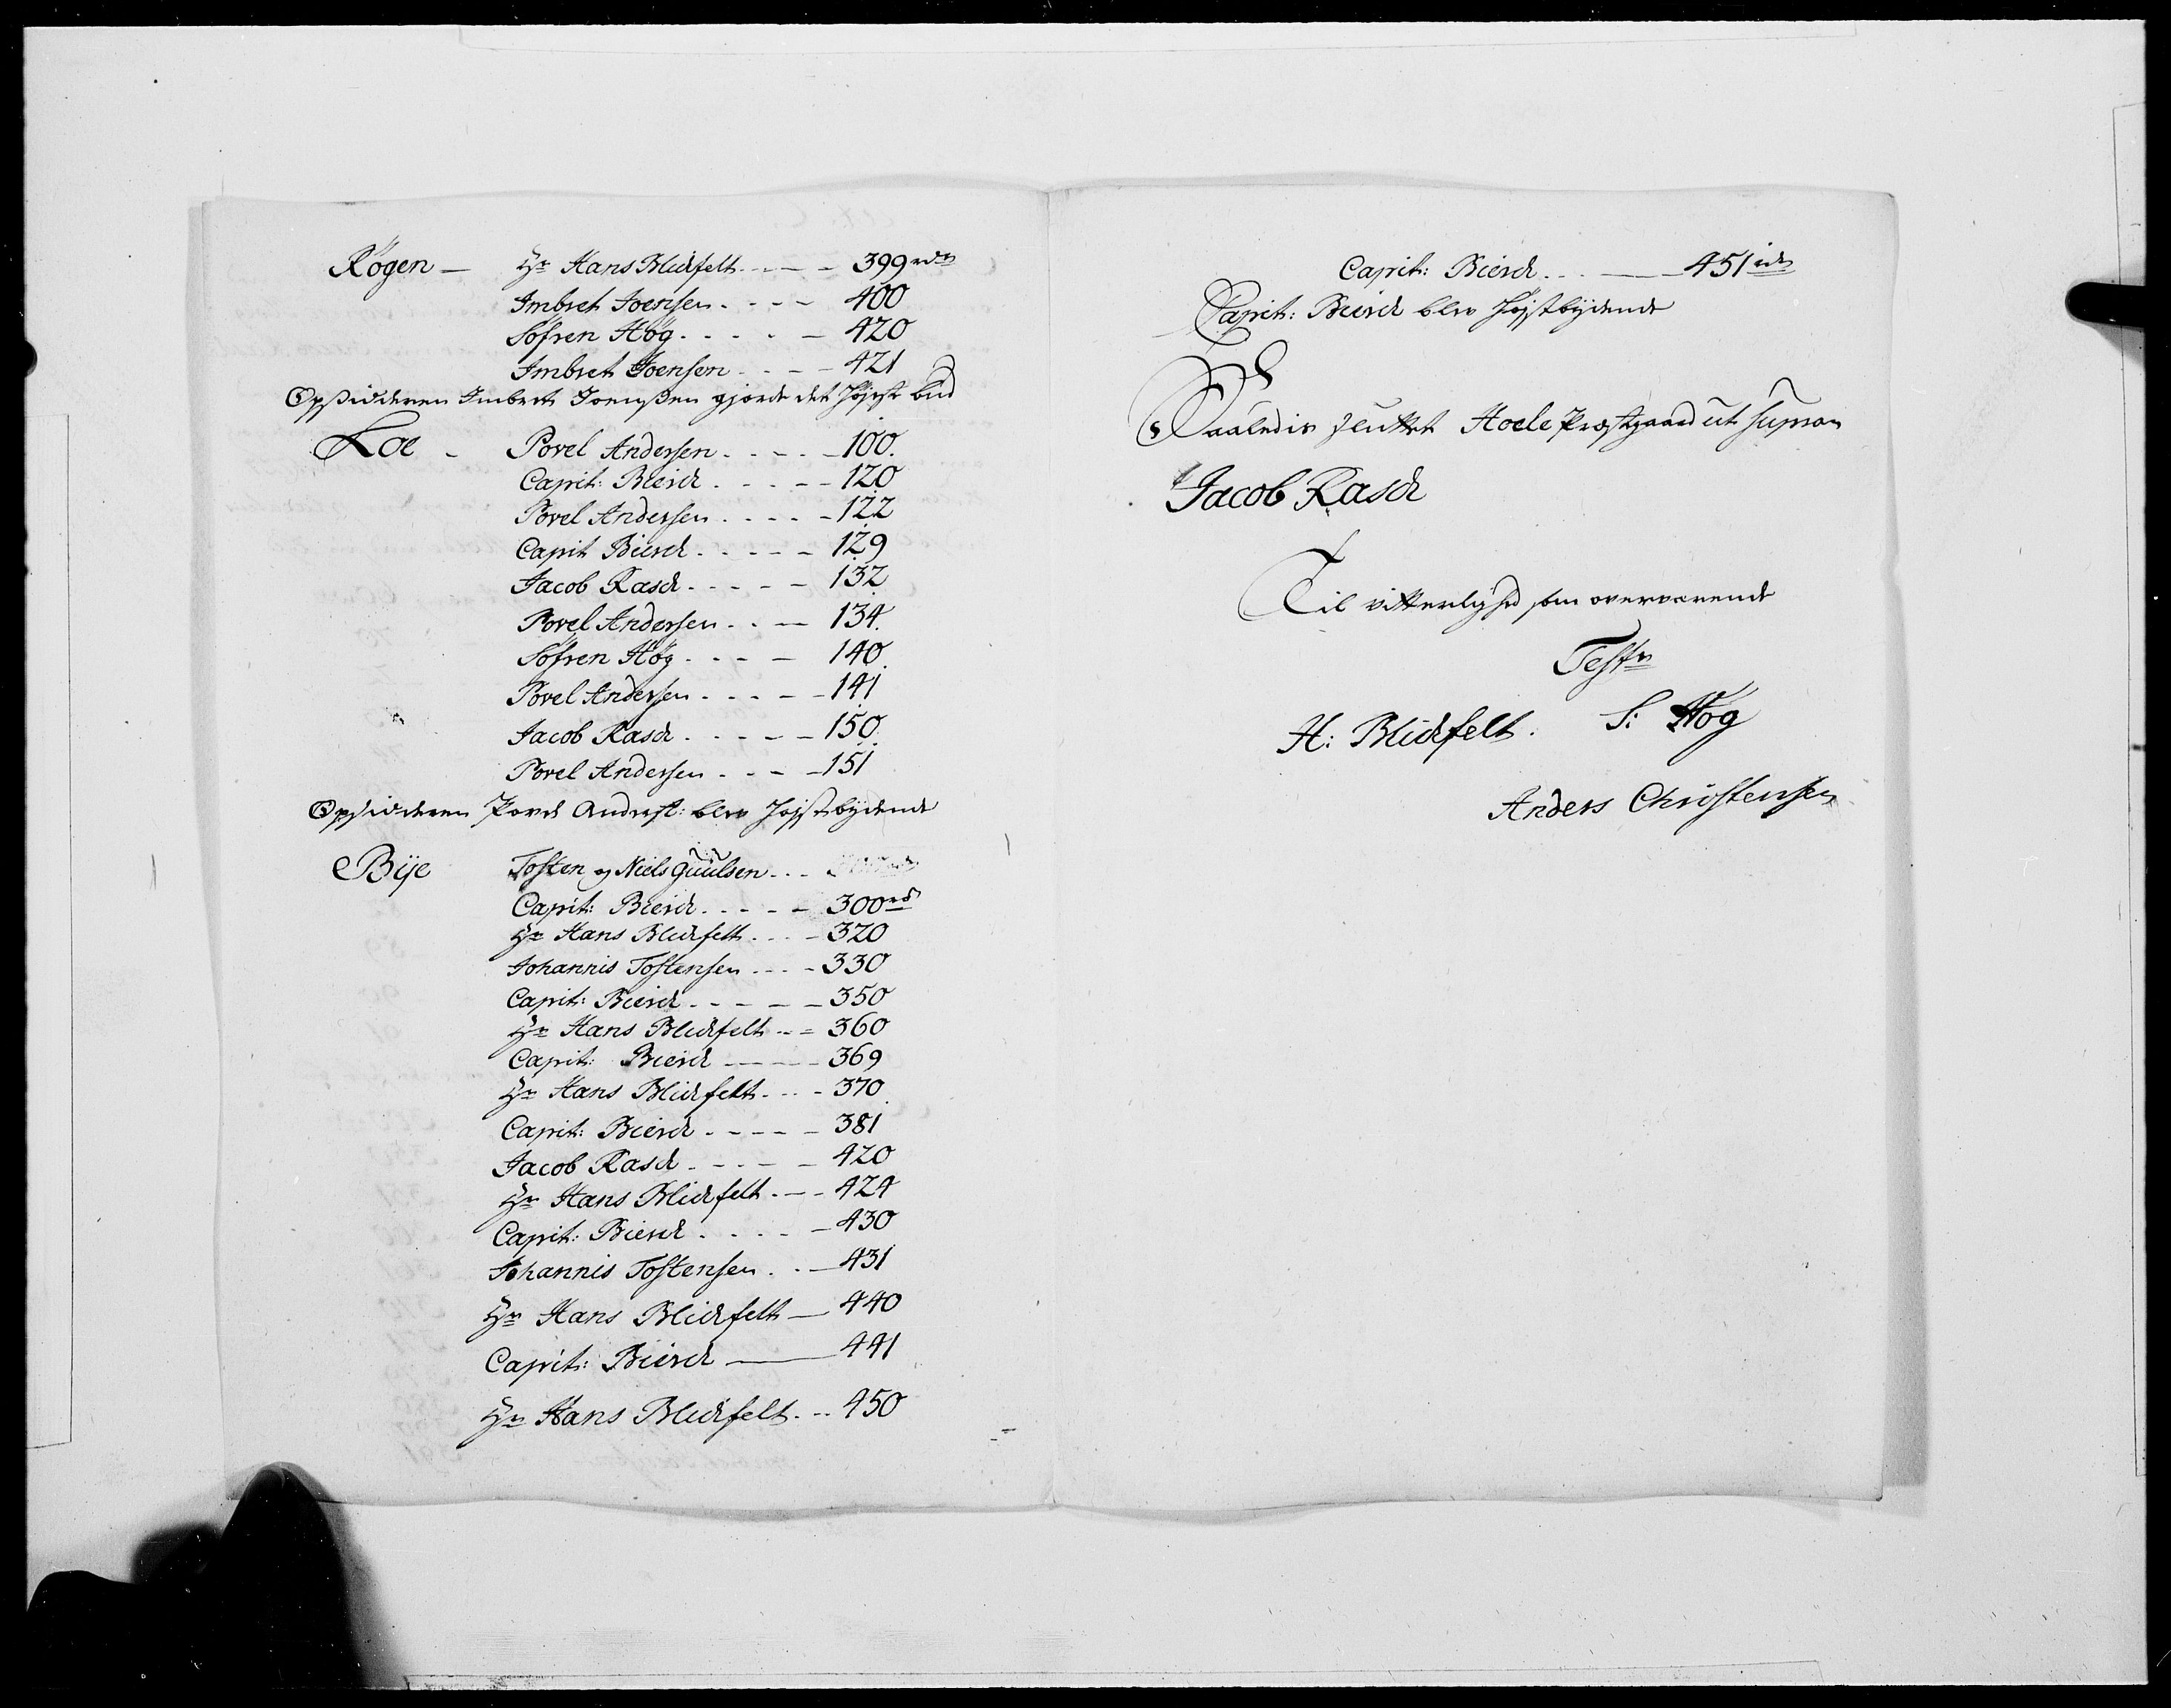 Røgen — Hr Hans Blickfelt - - - - 399 rdr
Imbret Joensen - - - - 400
Söfren Hög - - - - - 420
Imbret Joensen - - - - 421
Opsidderen Imbret Joensen gjorde det Højest bud
Loe - Povel Andersen - - - - 100.
Capit: Bierch - - - - - 120
Povel Andersen - - - - - 122
Capit Bierch - - - - - 129
Jacob Rasch - - - - - 132
Povel Andersen - - - 134.
Söfren Hög - - - - 140.
Povel Andersen - - - - - 141
Jacob Rasch - - - - - 150.
Povel Andersen - - - - 151
Opsidderen Povel Anders: blev Højstbÿdende
Bÿe Tosten og Niels Guulsen - - -
Capit: Bierch - - - - - 300 rd
Hr Hans Blickfelt - - - 320
Johannis Tostensen - - - - 330
Capit: Bierch - - - - - 350
Hr Hans Blickfelt - - = 360
Capit: Bierch - - - - - 369
Hr Hans Blickfelt - - - - 370
Capit: Bierch - - - - - 381
Jacob Rasch - - - - - 420
Hr Hans Blickfelt - - - 424
Capit: Bierch - - - - - 430
Johannis Tostensen - - - 431
Hr Hans Blickfelt — 440
Capit: Bierch —— 441
Hr Hans Blickfelt - - - 450
Capit: Bierch - - —— 451 rdr
Capit: Bierch blev Højstbÿdende
Saaledis sluttet Hoele Præstgaard ut supra
Jacob Rasch
Til vitterlighed som overværende
Testr
H: Blickfelt. S: Hög
Anders Christensen